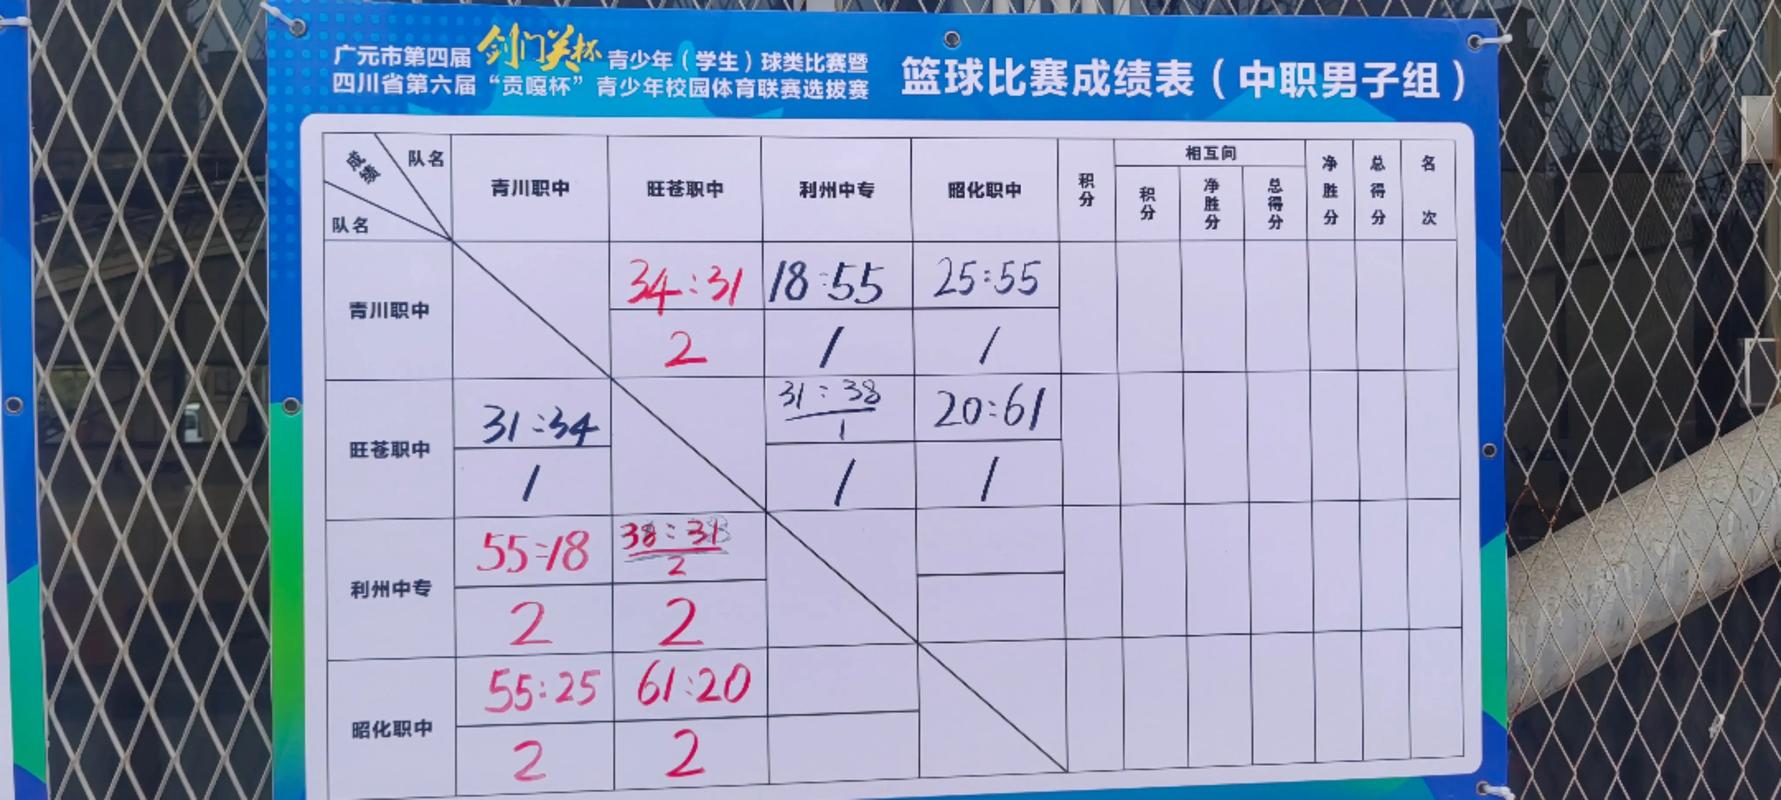 广元市第四届 剑门关杯 青少年（学生）球类比赛暨
四川省第六届“贡嘎杯”青少年校园体育联赛选拔赛
篮球比赛成绩表（中职男子组）
成绩 队名 队名 青川职中 旺苍职中 利州中专 昭化职中 积分 相互间 积分 净胜分 总得分 净胜分 总得分 名次
青川职中 34:31 18:55 25:55
2 1 1
旺苍职中 31:34 31:38 20:61
1
1 1 1
利州中专 55:18 38:31
2
2 2
昭化职中 55:25 61:20
2 2